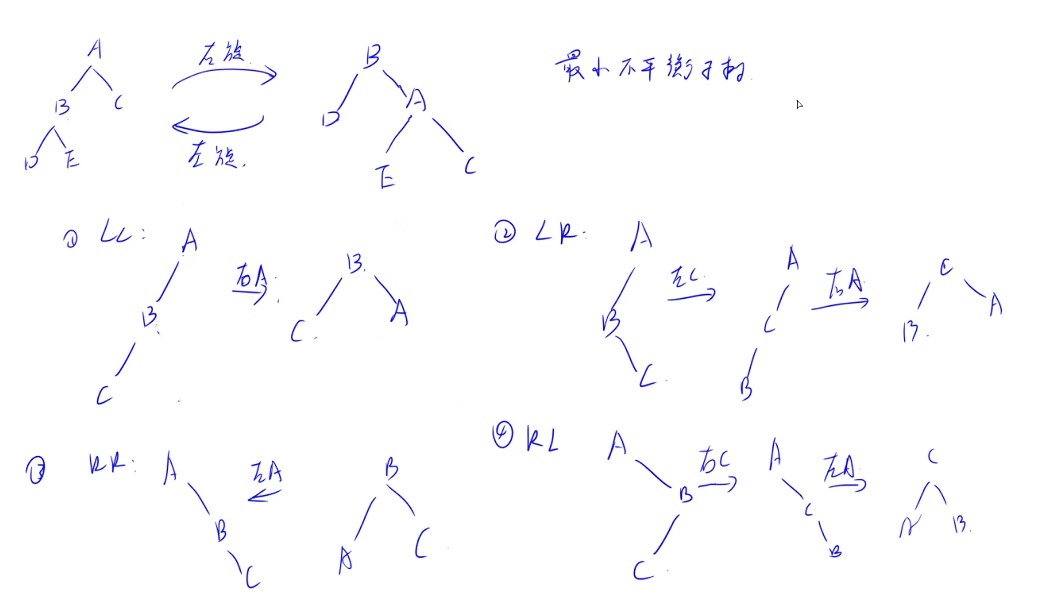 A
B C
D E
右旋
左旋.
B
D A
E C
最小不平衡子树
① LL:
A
B
C
右A:
B
C A
② LR:
A
B
C
左C
A
C
B
右A
C
B A
③ RR:
A
B
C
左A
B
A C
④ RL
A
B
C
右C
A
C
B
左A
C
A B